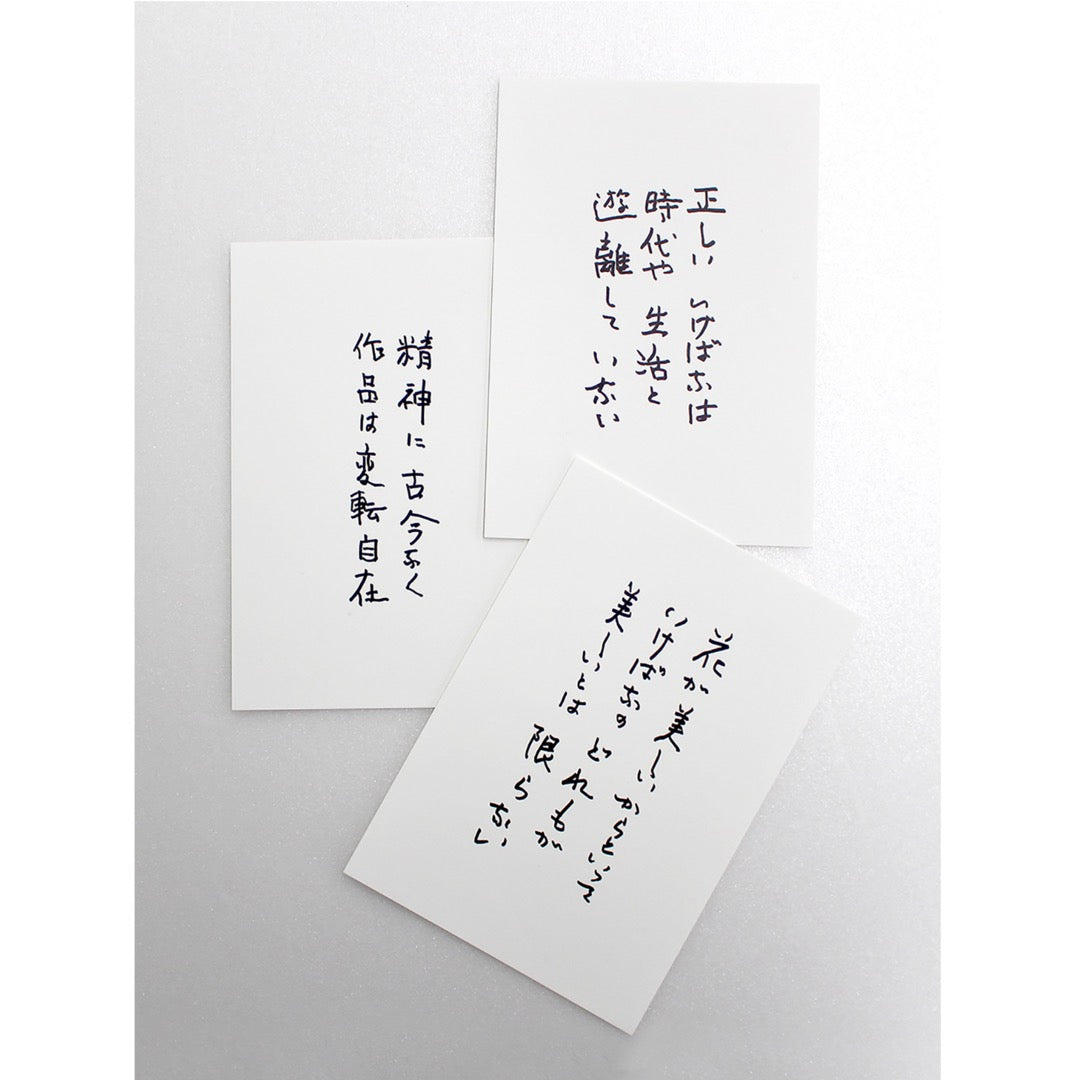 正しい いけばなは
時代や 生活と
遊離して いない
精神に 古今なく
作品は変転自在
花が美しいからといって
いけばなの どれもが
美しいとは 限らない
し